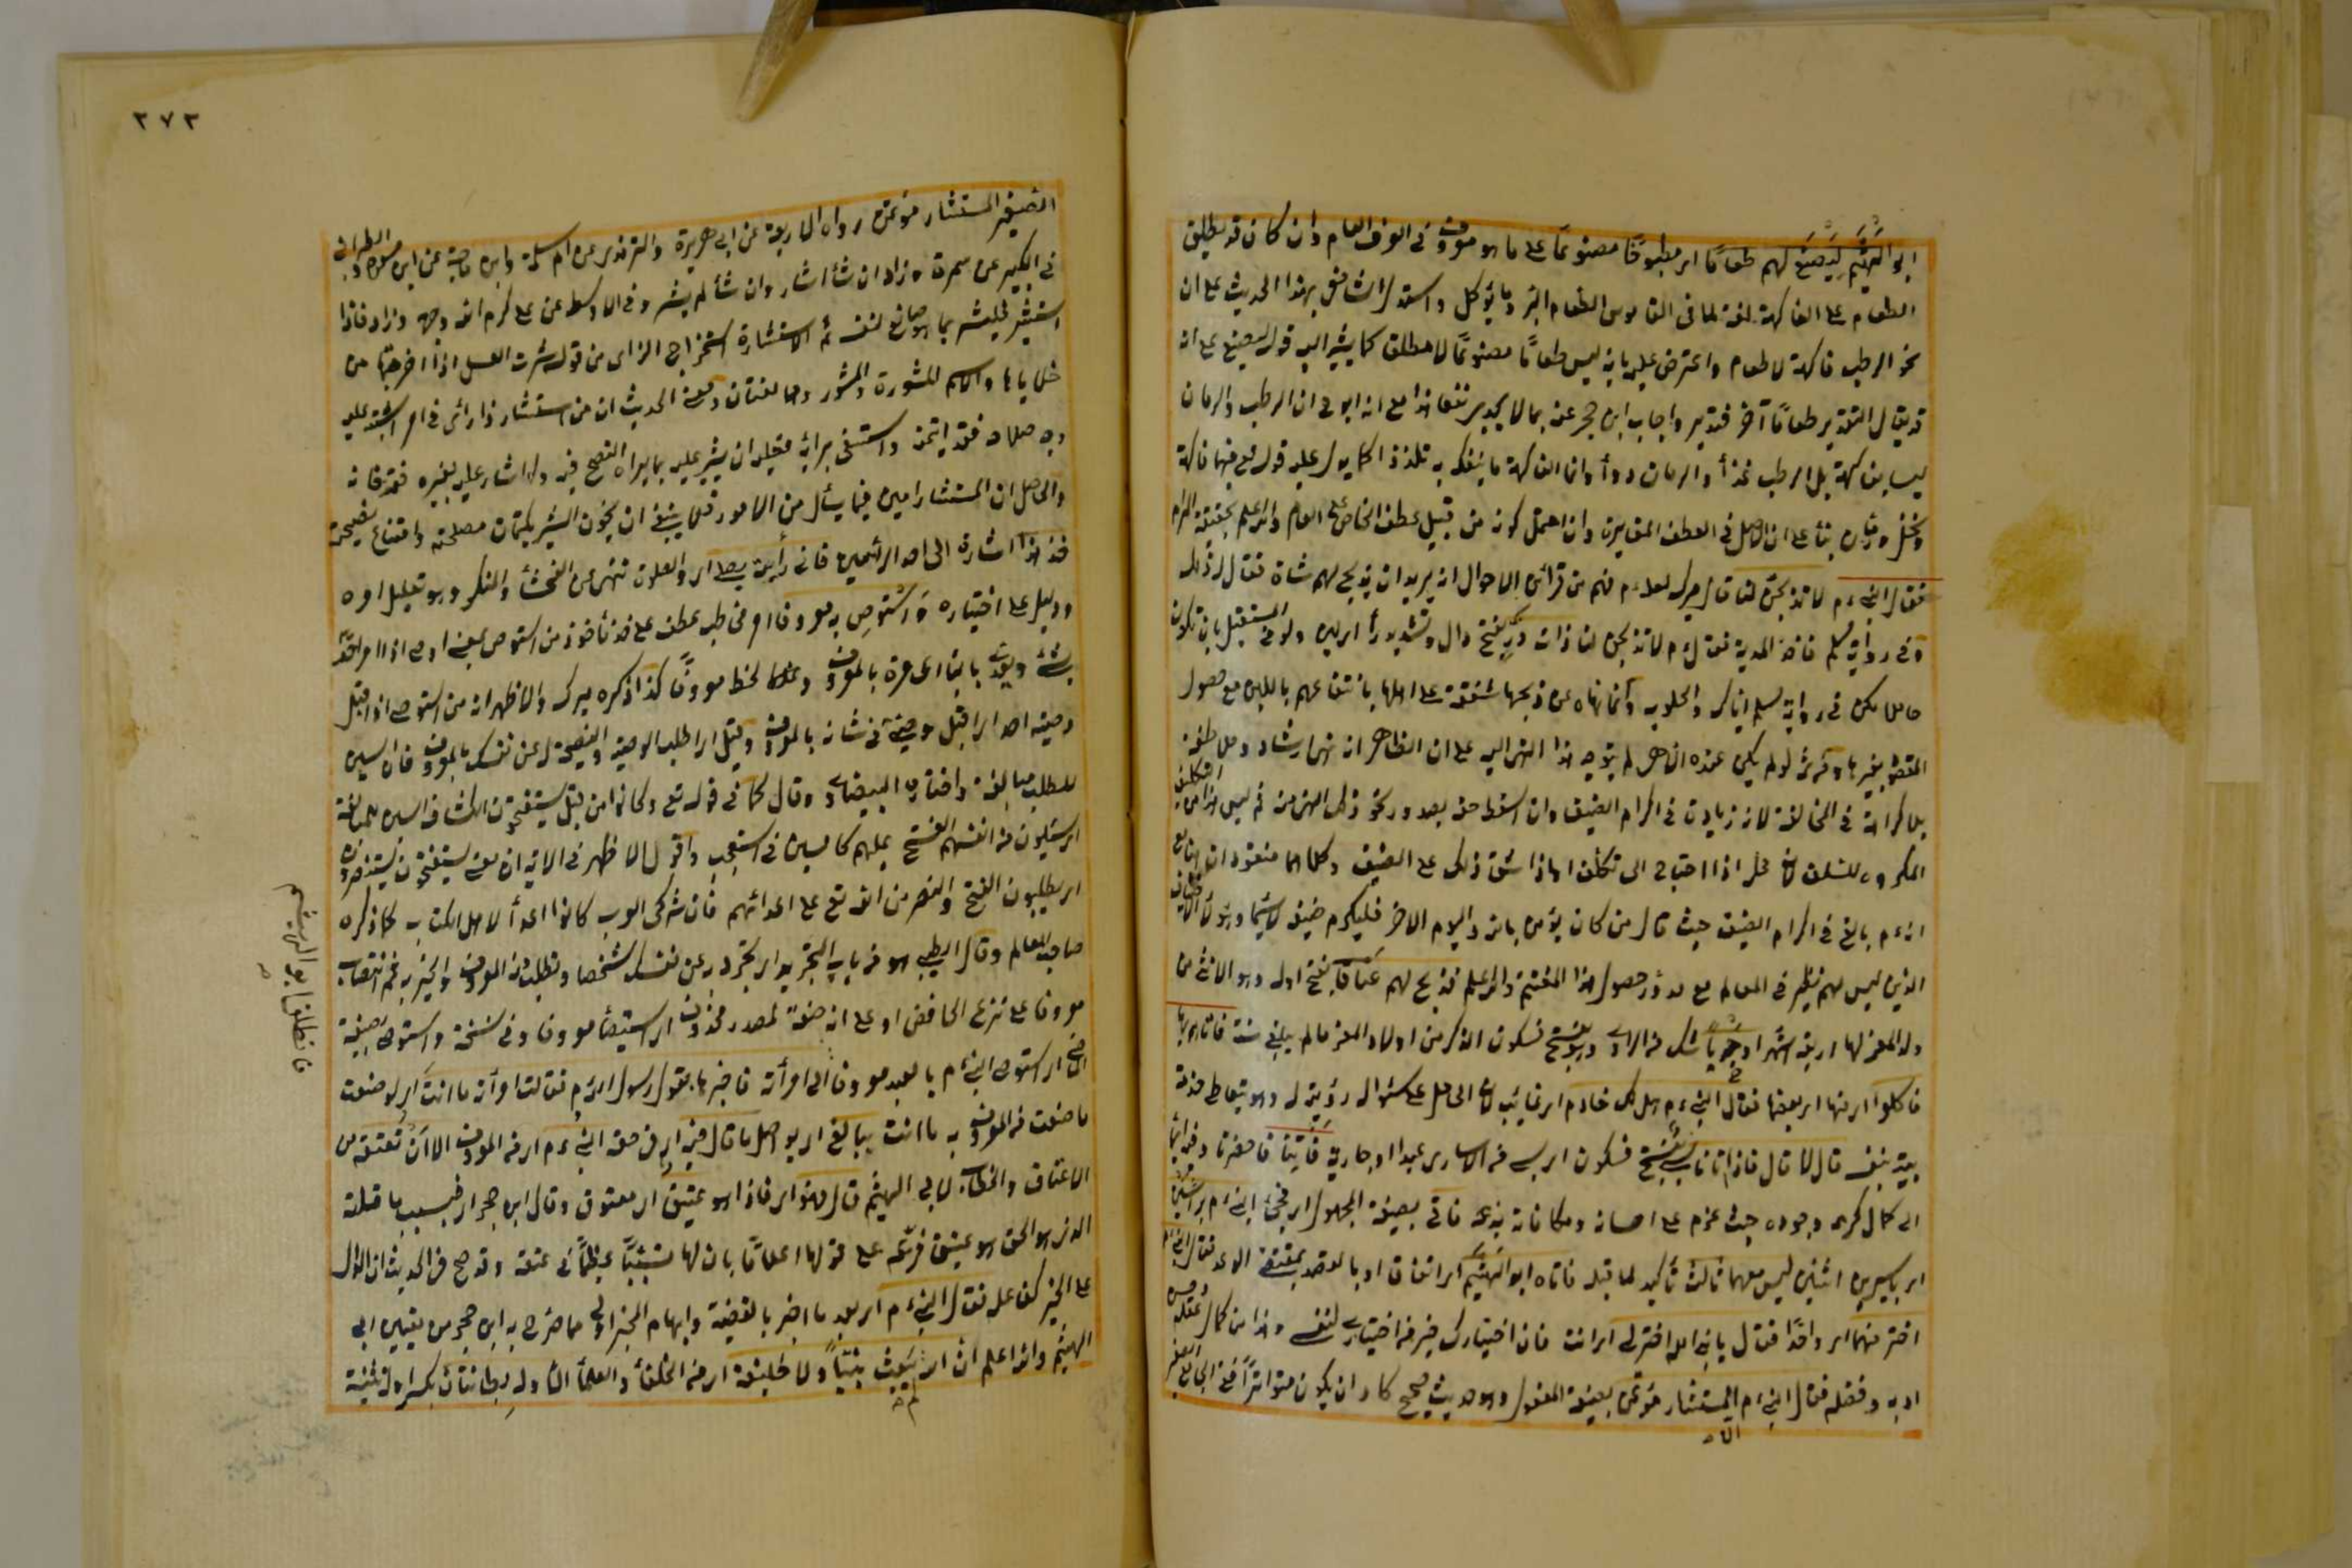 ابو الهَيْثَم لِيَصْنَعَ لهم طعامًا اى مطبوخًا مصنوعًا على ما هو معروف فى العرف العام وان كان قد يطلق
الطعام على الفاكهة لغة لما فى القاموس الطعام البر وما يؤكل واستدل الشافعى بهذا الحديث على ان
نحو الرطب فاكهة لا طعام واعترض عليه بانه ليس طعامًا مصنوعًا لا مطلقا كما يشير اليه قوله ليصنع على انه
قد يقال التقدير طعامًا آخر فتدبر واجاب ابن حجر عنه بما لا يجدى نفعا هذا مع ان ابو ح ان الرطب والرمان
ليسا بفاكهة بل الرطب غذأ والرمان دوأ وانما الفاكهة ما يتفكه به تلذذا كما يدل عليه قوله تع فيها فاكهة
ونخل ورمان بنأ على ان الاصل فى العطف المغايرة وان احتمل كونه من قبيل عطف الخاص على العام والله اعلم بحقيقة المرام
فقال النبى ءم لا تذبحن لنا قال ميرك لعله ءم فهم من قرائن الاحوال انه يريد ان يذبح لهم شاة فقال له ذلك
وفى رواية مسلم فاخذ المدية فقال ءم لا تذبحن لنا ذات دَرّ بفتح دال وتشديد رأ اى لبن ولو فى المستقبل بان تكون
حاملا لكن فى رواية مسلم اياك والحلوب وانما نهاه عن ذبحها شفقة على اهلها بانتفاعهم باللبن مع حصول
المقصود بغيرها ومن ثمه لو لم يكن عنده الا هى لم يتوجه هذا النهى اليه على ان الظاهر انه نهى ارشاد وملاطفة
بلا كراهة فى المخالفة لانه زيادة فى اكرام الضيف وان اسقط حقه بعد ونحو ذلك النهى منه ثم ليس هذا من التكلف
المكروه للسلف لان محل اذا احتاج الى تكلف او ما ذا شق ذلك على المضيف وكلاهما مفقود ان هنا مع
انه ءم بالغ فى اكرام الضيف حيث قال من كان يؤمن بالله واليوم الاخر فليكرم ضيفه لا سيما وهؤلاء الاضياف
الذين ليس لهم نظير فى العالم مع ندور حصول هذا المغتنم والله اعلم فذبح لهم عَنَاقًا بفتح اوله وهو الانثى من
ولد المعز لها اربعة اشهر او جديا شك من الراوى وهو بفتح فسكون الذكر من اولاد المعز ما لم يبلغ سنة فاتاهم بها
فاكلوا اى منها اى بعضها فقال النبى ءم هل لك خادم اى غائب لان الحامل على سؤاله رؤيته له وهو يتعاطى خدمة
بيته بنفسه قال لا قال فاذا اتانا سَبْىٌ بفتح فسكون اى سبى من الاسارى عبدا او جارية فأتنا فاحضرنا وفيه ايماء
الى كمال كرمه وجوده حيث عزم على احسانه ومكافاته بذله فاتى بصيغة المجهول اى فجئ النبى ءم برأسين
اى باسيرين اثنين ليس معهما ثالث تأكيد لما قبله فاتاه ابو الهَيْثَم اى اتفاقا او بالقصد بمقتضى الوعد فقال النبى ءم
اختر منهما اى واحدًا فقال يا نبى الله اختر لى اى انت فان اختيارك خير من اختيارى لنفسى وهذا من كمال عقله وحسن
ادبه وفضله فقال النبى ءم ان المستشار مؤتمن بصيغة المفعول وهو حديث صحيح كاد ان يكون متواترًا ففى الجامع الصغير
الا
٢٧٣
الصغير المستشار مؤتمن رواه الاربعة عن ابى هريرة والترمذى عن ام سلمة وابن ماجة عن ابن مسعود والطبرانى
فى الكبير عن سمرة وزاد ان شأ اشار وان شأ لم يشر وفى الاوسط عن على كرم الله وجهه وزاد فاذا
استشير فليشر بما هو صانع لنفسه ثم الاستشارة استخراج الرأى من قولك شرت العسل اذا اخرجتها من
خلاياها والاسم المشورة والمشور وهما لغتان ومعنى الحديث ان من استشار ذا رأى فى امر اشتبه عليه
وجه صلاحه فقد ائتمنه واستشفى برأيه فعليه ان يشير عليه بما يراه النصح فيه ولو اشار عليه بغيره فقد خانه
والحاصل ان المستشار امين فيما يسأل من الامور فلا ينبغى ان يخون المشير بكتمان مصلحته وامتناع نصيحته
خذ هذا اشارة الى احد الرأسين فانى رأيته يصلى اى والصلوة تنهى عن الفحشأ والمنكر وهو تعليل امره
ودليل على اختياره وَاسْتَوْصِ به معروفا امر مخاطب عطف على خذ مأخوذ من استوصى بمعنى اوصى اذا امر احدًا
بشئ ويعدى بالبأ اى مره بالمعروف وعظه لحظا معروفًا كذا ذكره ميرك والاظهر انه من استوصى اذا قبل
وصية احد اى اقبل وصيتى فى شانه بالمعروف وقيل اى اطلب الوصية والنصيحة له عن نفسك بالمعروف فان السين
للطلب مبالغة واختاره البيضاوى وقال كما فى قوله تع وكانوا من قبل يستفتحون الكشاف السين للمبالغة
اى يسئلون من انفسهم الفتح عليهم كالسين فى استعجب واقول الاظهر فى الاية ان معنى يستفتحون يستنصرون
اى يطلبون الفتح والنصر من الله تع على اعدائهم فان مشركى العرب كانوا اعدأ لاهل الكتاب كما ذكره
صاحب المعالم وقال الطيبى هو من باب التجريد اى يجرد عن نفسك شخصا وتطلب منه المعروف والخير به ثم انتصاب
معروفا على نزع الخافض او على انه صفة لمصدر محذوف اى استيصأ معروفا وفى نسخة واستوصى بصيغة
الماضى اى استوصى النبى ءم بالعبد معروفا الى امرأته فاخبرها بقول رسول الله ءم فقالت امرأته ما انت اى لو صنعت
ما صنعت من المعروف به ما انت ببالغ اى بواصل ما قال فيه اى فى حقه النبى ءم اى من المعروف الا اَن تعتقه من
الاعتاق والخطاب لابى الهيثم قال فهو اى فاذا هو عَتِيق اى معتوق وقال ابن حجر اى فبسبب ما قلته
الذى هو الحق هو عتيق فرّعه على قولها اعلامًا بان لها تسببًا عظيمًا فى عتقه وقد صح فى الحديث ان الدال
على الخير كفاعله فقال النبى ءم اى بعد ما اخبر بالقضية وابهام المخبر اولى مما صرح به ابن حجر من تعيين ابى
الهيثم والله اعلم ان الله لم يَبعَث نبيًّا ولا خليفة اى من الخلفأ والعلمأ الا وله بِطَانَتَان بكسر اوله تثنية
فانطلق ابو الهيثم